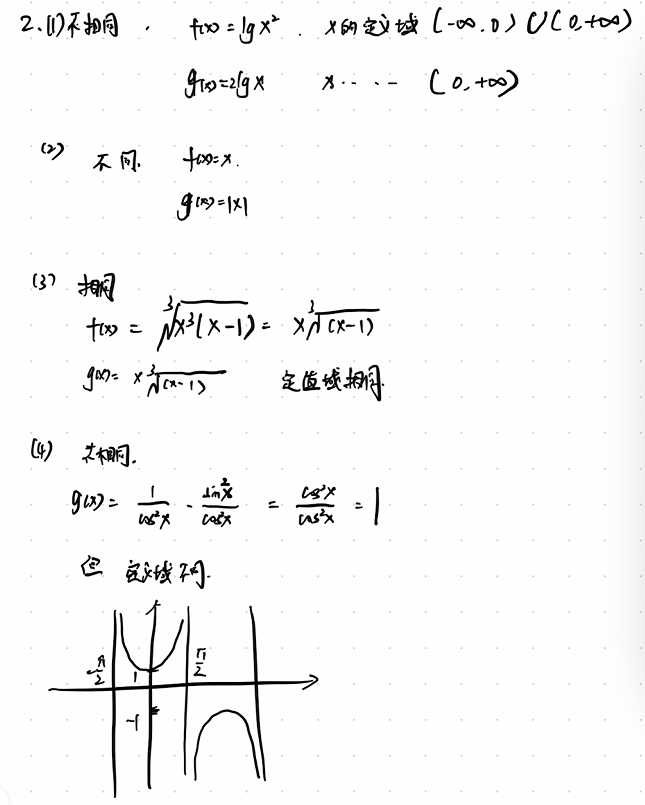 2.(1)不相同. f(x)=lgx². x的定义域 (-∞.0)∪(0,+∞)
g(x)=2lgx x····· (0,+∞)
(2) 不同. f(x)=x.
g(x)=|x|
(3) 相同
f(x)=∛(x³(x-1))=x∛(x-1)
g(x)=x∛(x-1) 定值域相同.
(4) 不相同.
g(x)=1/cos²x-sin²x/cos²x=cos²x/cos²x=1
但 定义域不同.
-π/2 1 π/2
-1